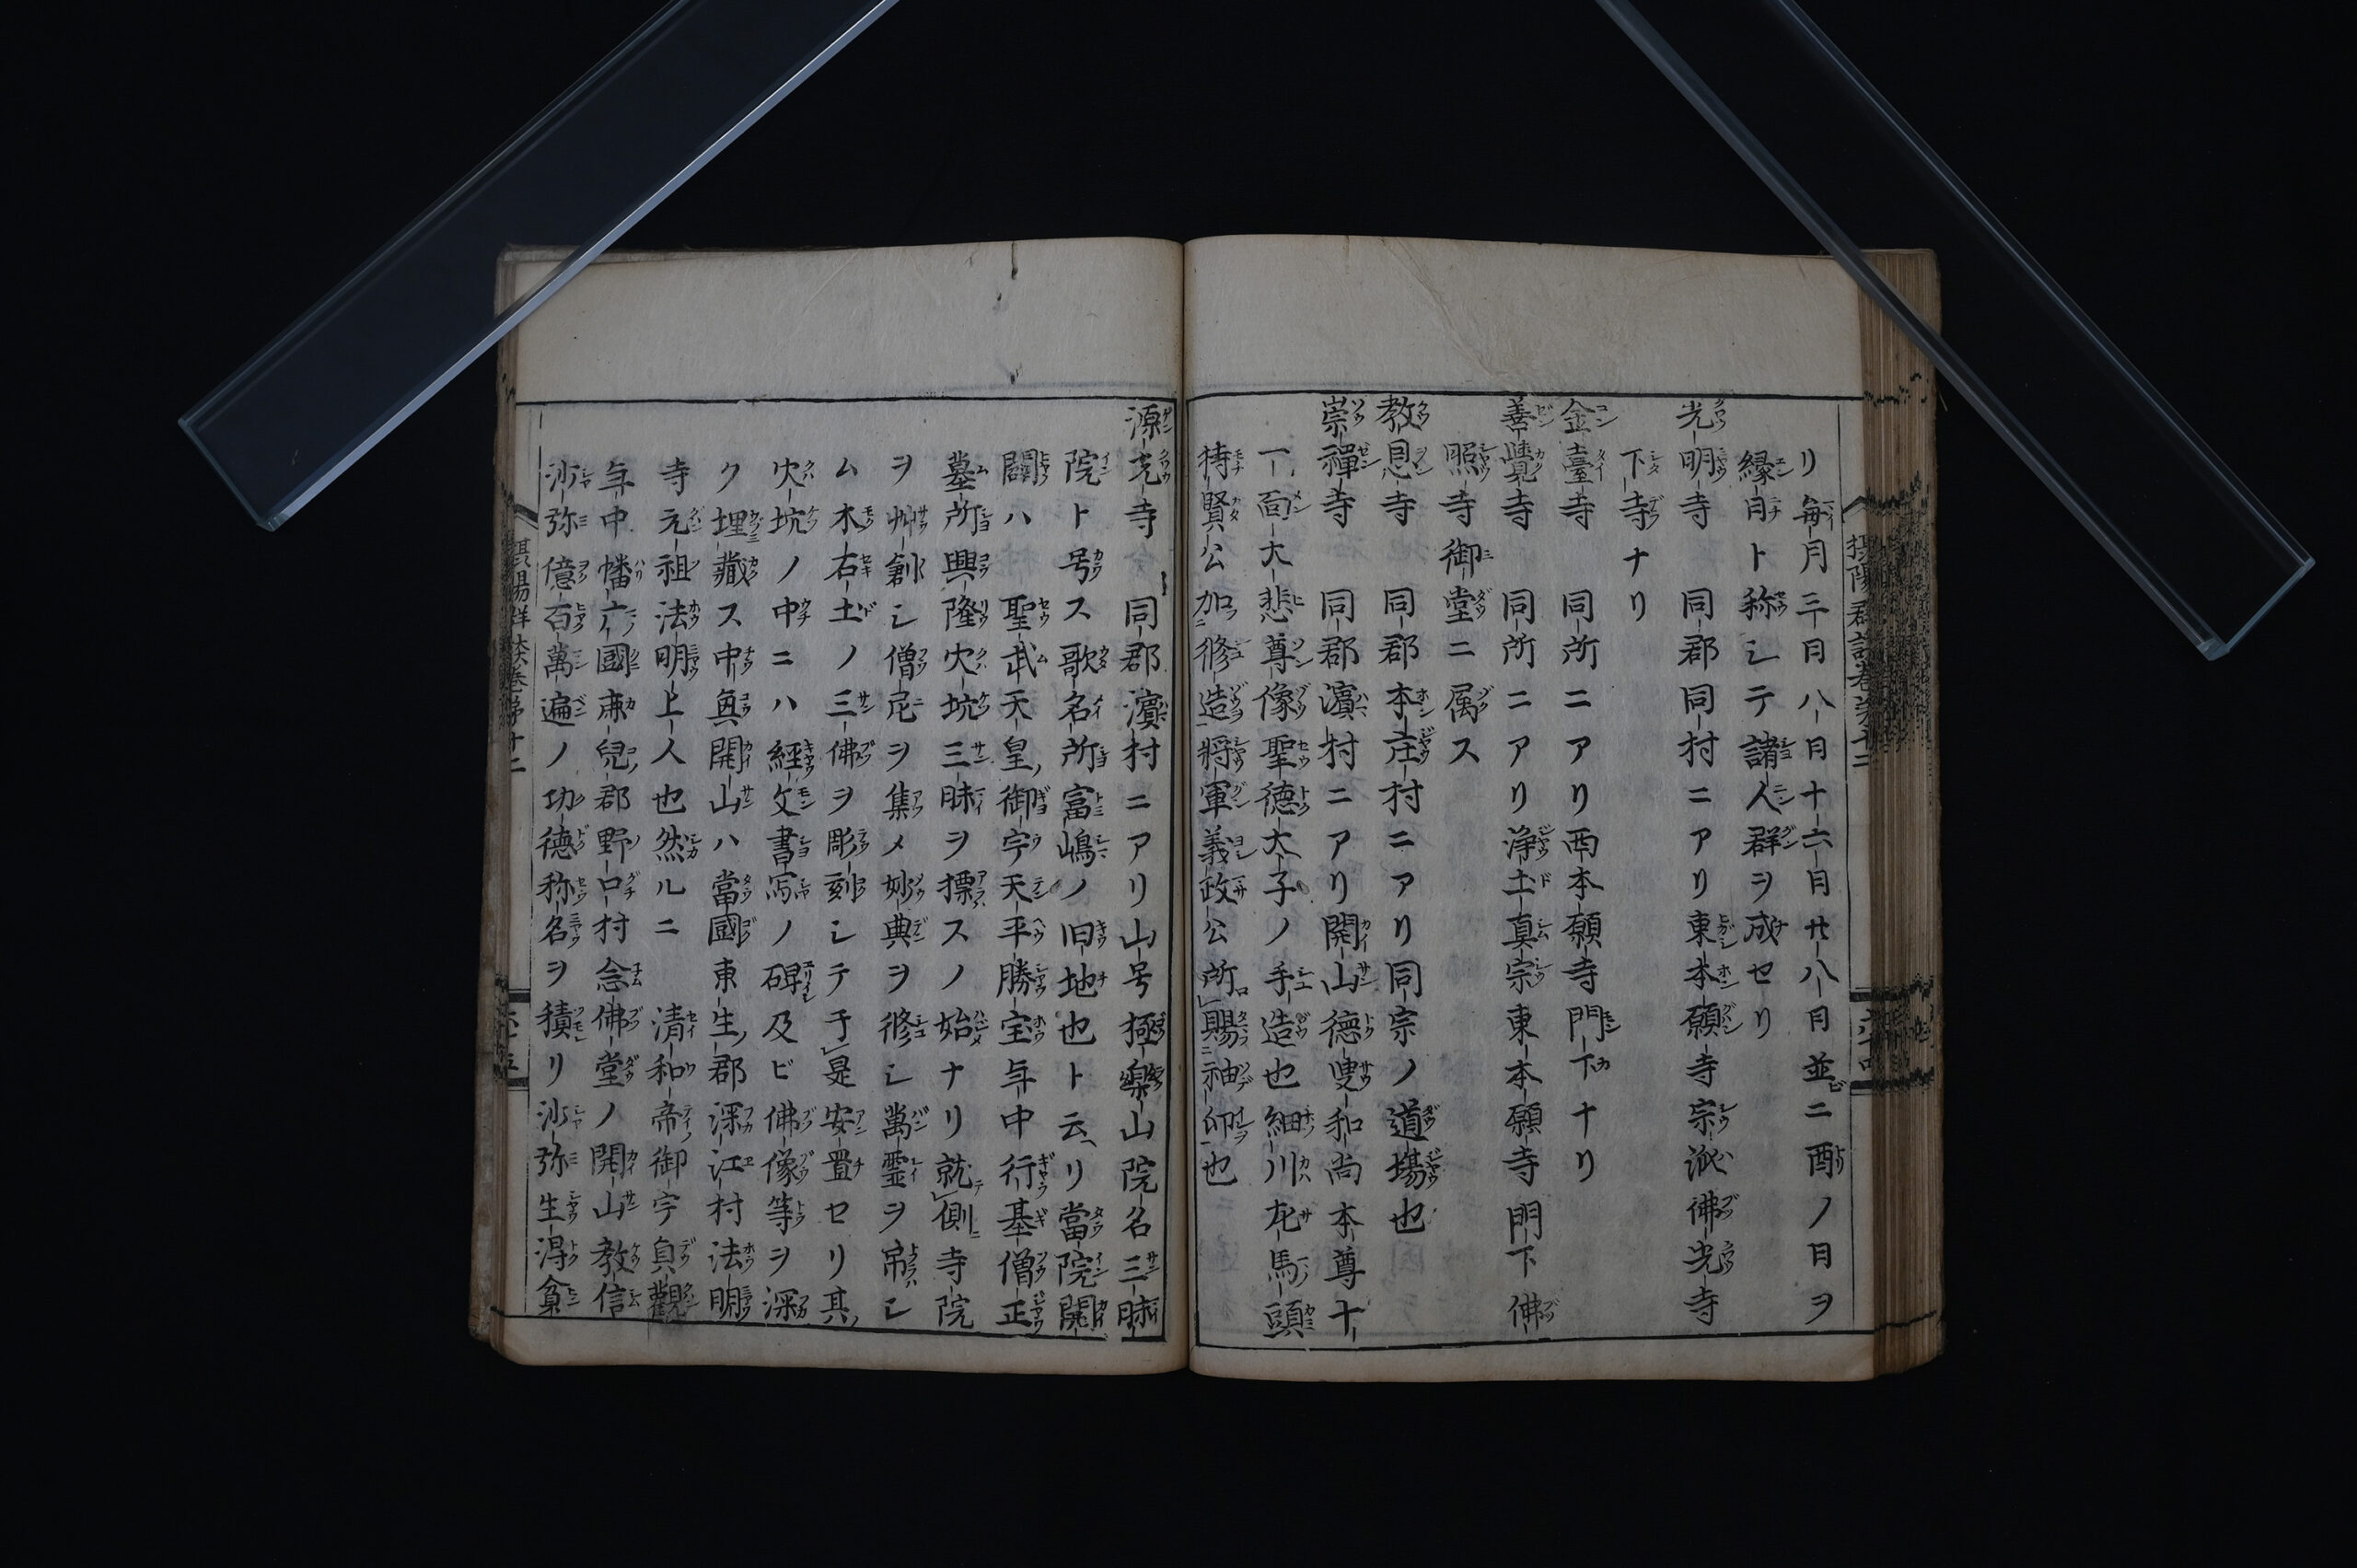 リ毎月三日八日十六日廿八日並ニ酉ノ日ヲ
縁日ト称シテ諸人群ヲ成セリ
光明寺 同郡同村ニアリ東本願寺宗派佛光寺
下寺ナリ
金臺寺 同所ニアリ西本願寺門下ナリ
善覺寺 同所ニアリ浄土真宗東本願寺門下佛
照寺御堂ニ属ス
教恩寺 同郡本庄村ニアリ同宗ノ道場也
崇禪寺 同郡濵村ニアリ開山德叟和尚本尊十
一面大悲尊像聖德太子ノ手造也細川右馬頭
持賢公加修造將軍義政公所賜袖印也
源光寺 同郡濵村ニアリ山号極樂山院名三昧
院ト号ス歌名所富嶋ノ旧地也ト云リ當院開
闢ハ聖武天皇御宇天平勝宝年中行基僧正
墓所興隆火坑三昧ヲ標スノ始ナリ就側寺院
ヲ艸創シ僧尼ヲ集メ妙典ヲ修シ萬霊ヲ吊シ
ム木石土ノ三佛ヲ彫刻シテ于是安置セリ其
火坑ノ中ニハ經文書写ノ碑及ビ佛像等ヲ深
ク埋藏ス中興開山ハ當國東生郡深江村法明
寺元祖法明上人也然ルニ 清和帝御宇貞觀
年中幡六國鹿兒郡野口村念佛堂ノ開山教信
沙弥億百萬遍ノ功德称名ヲ積リ沙弥生得貧
摂陽群談巻第十二
摂陽群談巻第十二